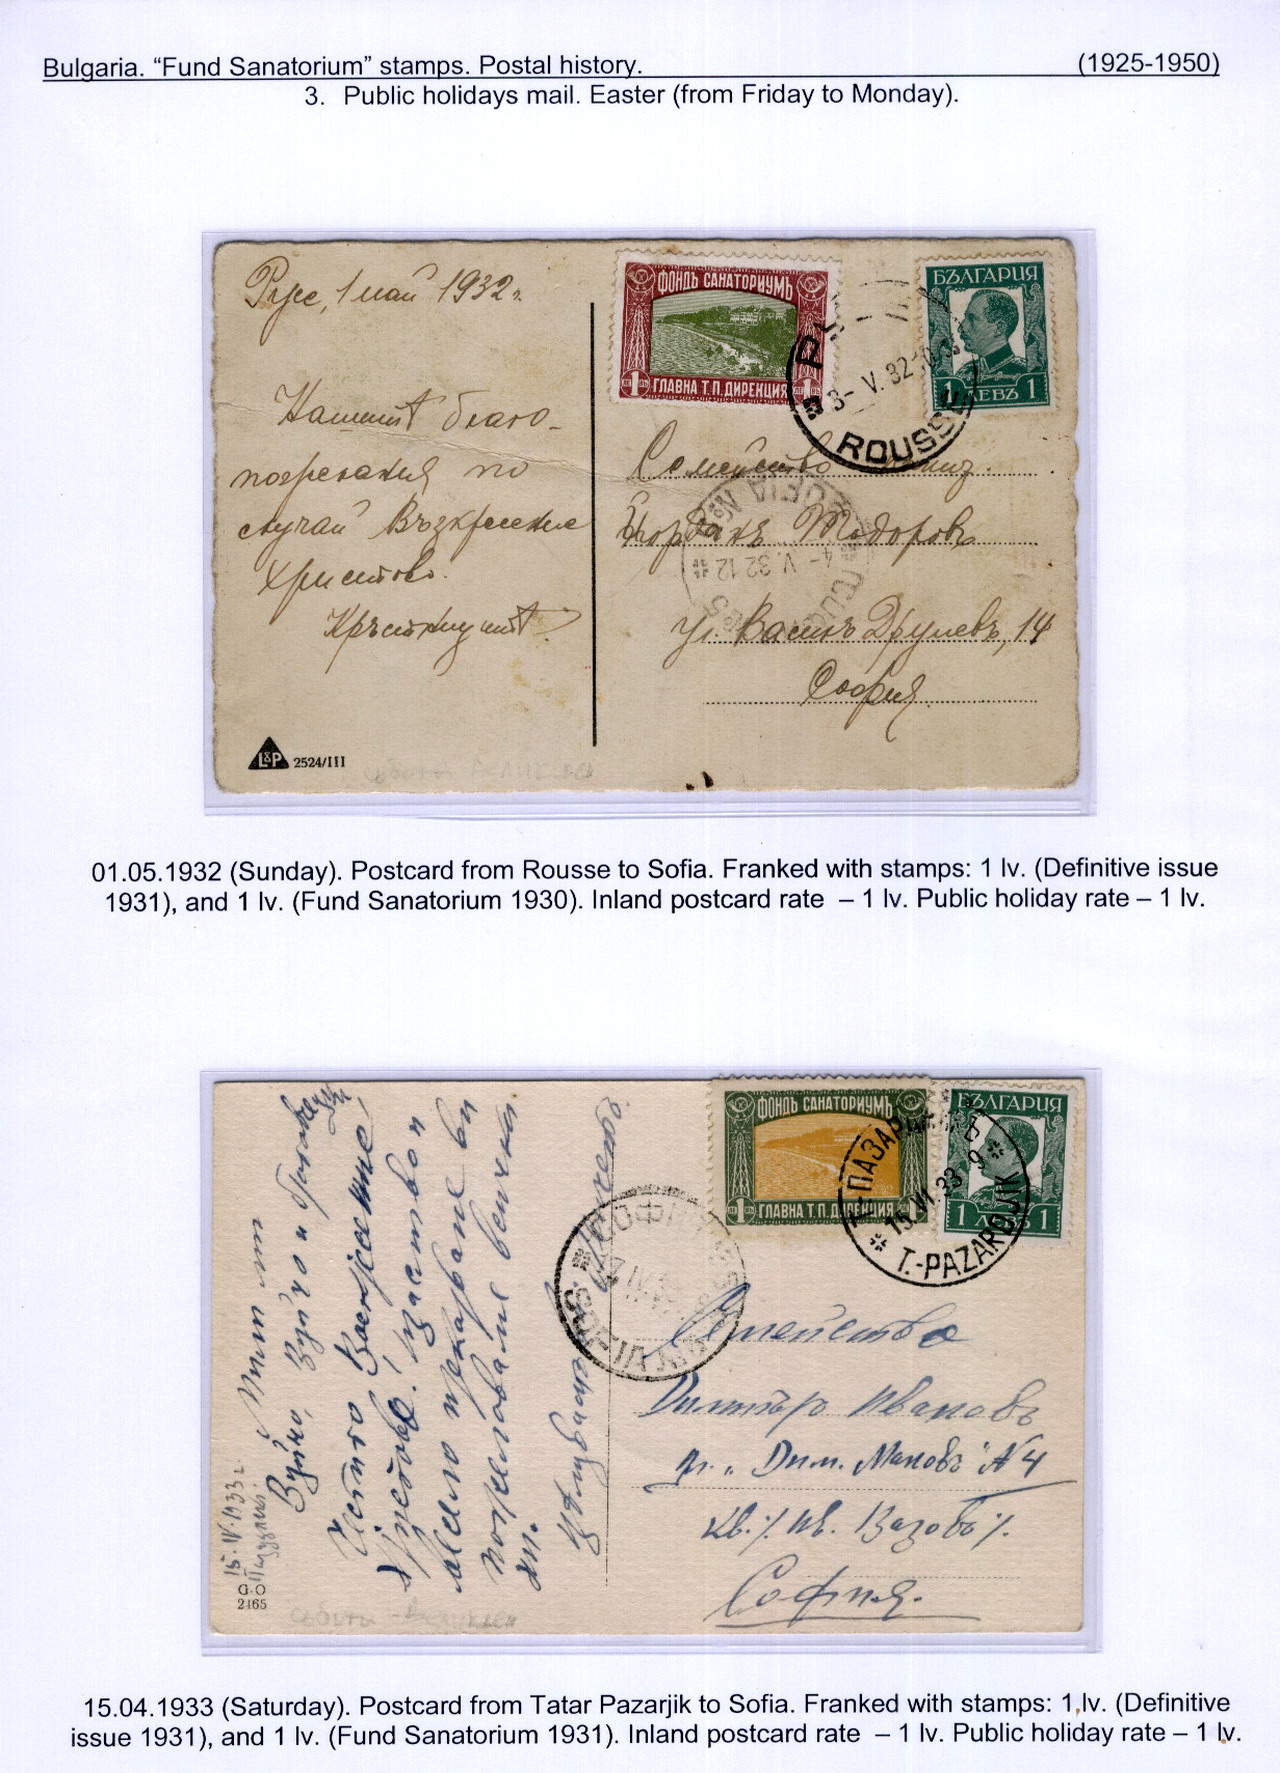 Bulgaria. “Fund Sanatorium” stamps. Postal history. (1925-1950)
3. Public holidays mail. Easter (from Friday to Monday).
Русе, 1 май 1932 г.
ФОНДЪ САНАТОРИУМЪ
1 ГЛАВНА Т.П. ДИРЕКЦИЯ 1
БЪЛГАРИЯ
1 ЛЕВЪ 1
3-V.32
ROUSSE
Нашитѣ благо-
пожелания по
случай Възкресение
Христово.
Кръстницитѣ
Семейство
Йорданъ Тодоровъ
4-V.32 12
SOFIA
ул. Василъ Друмевъ, 14
София
L&P 2524/III
01.05.1932 (Sunday). Postcard from Rousse to Sofia. Franked with stamps: 1 lv. (Definitive issue
1931), and 1 lv. (Fund Sanatorium 1930). Inland postcard rate – 1 lv. Public holiday rate – 1 lv.
ФОНДЪ САНАТОРИУМЪ
1 ГЛАВНА Т.П. ДИРЕКЦИЯ 1
БЪЛГАРИЯ
1 ЛЕВЪ 1
Т.-ПАЗАРДЖИКЪ
15.IV.33 9
T.-PAZARDJIK
15.IV.1933 г.
Вуйно, Вуйчо и
Честито Воскресение
Христово!
весело прекарване ви
пожелаваме всички
Семейство
Димитъръ Ивановъ
ул. „Дим. Мановъ“ № 4
кв. /. Ив. Вазовъ /.
София.
G.O
2465
15.04.1933 (Saturday). Postcard from Tatar Pazarjik to Sofia. Franked with stamps: 1 lv. (Definitive
issue 1931), and 1 lv. (Fund Sanatorium 1931). Inland postcard rate – 1 lv. Public holiday rate – 1 lv.